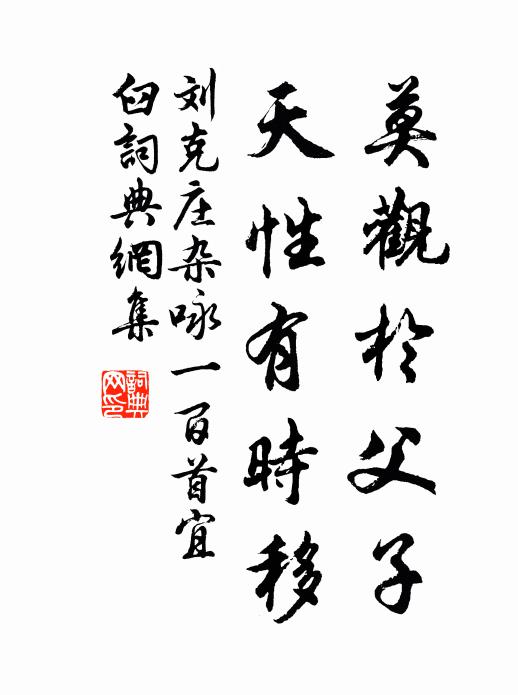 莫觀於父子
天性有時移
刘克庄杂咏一百首宜
臼詞典網集
詞典網印